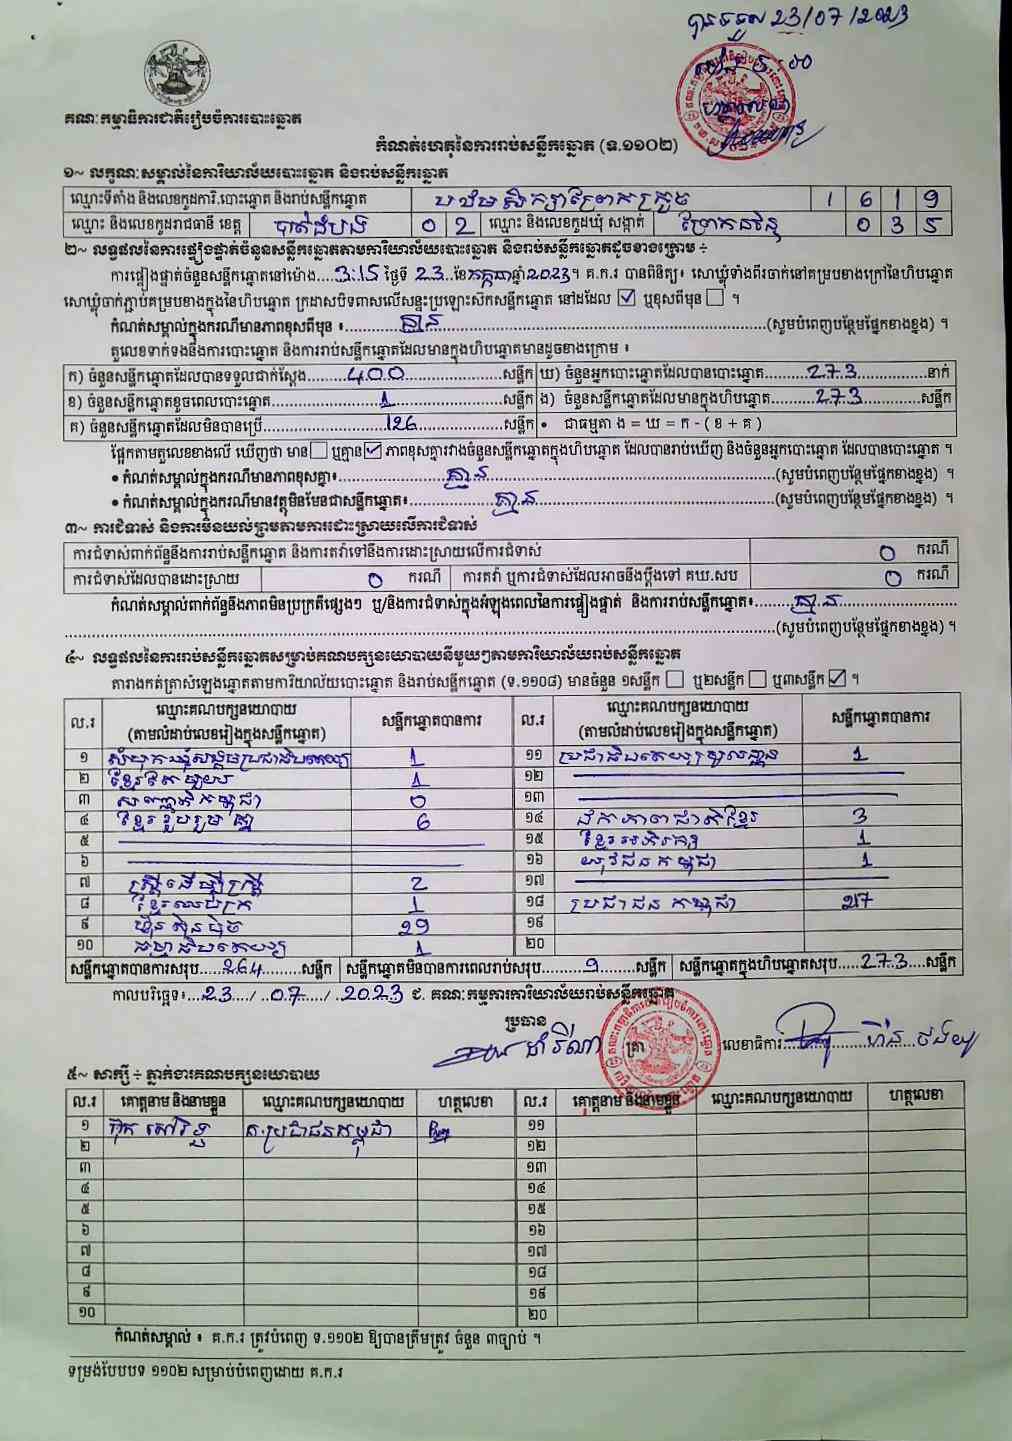 បានទទួល 23/07/2023
គណៈកម្មាធិការជាតិរៀបចំការបោះឆ្នោត
កំណត់ហេតុនៃការរាប់សន្លឹកឆ្នោត (ទ.១១០២)
១~ លក្ខណៈសម្គាល់នៃការិយាល័យបោះឆ្នោត និងរាប់សន្លឹកឆ្នោត
ឈ្មោះទីតាំង និងលេខកូដការិ.បោះឆ្នោត និងរាប់សន្លឹកឆ្នោត បឋមសិក្សាព្រែកក្រូច 1 6 1 9
ឈ្មោះ និងលេខកូដរាជធានី ខេត្ត បាត់ដំបង 0 2 ឈ្មោះ និងលេខកូដឃុំ សង្កាត់ 0 3 5
២~ លទ្ធផលនៃការផ្ទៀងផ្ទាត់ចំនួនសន្លឹកឆ្នោតតាមការិយាល័យបោះឆ្នោត និងរាប់សន្លឹកឆ្នោតដូចខាងក្រោម ÷
ការផ្ទៀងផ្ទាត់ចំនួនសន្លឹកឆ្នោតនៅម៉ោង....3:15 ថ្ងៃទី 23 ខែកក្កដាឆ្នាំ2023។ គ.ក.រ បានពិនិត្យ៖ សោឃ្លុំទាំងពីរចាក់នៅគម្របខាងក្រៅនៃហិបឆ្នោត
សោឃ្លុំចាក់ភ្ជាប់គម្របខាងក្នុងនៃហិបឆ្នោត ក្រដាសបិទពាសលើសន្ទះប្រឡោះស៊កសន្លឹកឆ្នោត នៅដដែល ☑ ឬខុសពីមុន ☐ ។
កំណត់សម្គាល់ក្នុងករណីមានភាពខុសពីមុន ៖ គ្មាន (សូមបំពេញបន្ថែមផ្នែកខាងខ្នង) ។
តួលេខទាក់ទងនឹងការបោះឆ្នោត និងការរាប់សន្លឹកឆ្នោតដែលមានក្នុងហិបឆ្នោតមានដូចខាងក្រោម ៖
ក) ចំនួនសន្លឹកឆ្នោតដែលបានទទួលជាក់ស្ដែង 400 សន្លឹក ឃ) ចំនួនអ្នកបោះឆ្នោតដែលបានបោះឆ្នោត 273 នាក់
ខ) ចំនួនសន្លឹកឆ្នោតខូចពេលបោះឆ្នោត 1 សន្លឹក ង) ចំនួនសន្លឹកឆ្នោតដែលមានក្នុងហិបឆ្នោត 273 សន្លឹក
គ) ចំនួនសន្លឹកឆ្នោតដែលមិនបានប្រើ 126 សន្លឹក • ជាធម្មតា ង = ឃ = ក - ( ខ + គ )
ផ្អែកតាមតួលេខខាងលើ ឃើញថា មាន ☐ ឬគ្មាន ☑ ភាពខុសគ្នារវាងចំនួនសន្លឹកឆ្នោតក្នុងហិបឆ្នោត ដែលបានរាប់ឃើញ និងចំនួនអ្នកបោះឆ្នោត ដែលបានបោះឆ្នោត ។
• កំណត់សម្គាល់ក្នុងករណីមានភាពខុសគ្នា៖ គ្មាន (សូមបំពេញបន្ថែមផ្នែកខាងខ្នង) ។
• កំណត់សម្គាល់ក្នុងករណីមានវត្ថុមិនមែនជាសន្លឹកឆ្នោត៖ គ្មាន (សូមបំពេញបន្ថែមផ្នែកខាងខ្នង) ។
៣~ ការជំទាស់ និងការមិនយល់ព្រមតាមការដោះស្រាយលើការជំទាស់
ការជំទាស់ពាក់ព័ន្ធនឹងការរាប់សន្លឹកឆ្នោត និងការតវ៉ាទៅនឹងការដោះស្រាយលើការជំទាស់ 0 ករណី
ការជំទាស់ដែលបានដោះស្រាយ 0 ករណី ការតវ៉ា ឬការជំទាស់ដែលអាចនឹងប្ដឹងទៅ គឃ.សប 0 ករណី
កំណត់សម្គាល់ពាក់ព័ន្ធនឹងភាពមិនប្រក្រតីផ្សេងៗ ឬ/និងការជំទាស់ក្នុងអំឡុងពេលនៃការផ្ទៀងផ្ទាត់ និងការរាប់សន្លឹកឆ្នោត៖ គ្មាន
(សូមបំពេញបន្ថែមផ្នែកខាងខ្នង) ។
៤~ លទ្ធផលនៃការរាប់សន្លឹកឆ្នោតសម្រាប់គណបក្សនយោបាយនីមួយៗតាមការិយាល័យរាប់សន្លឹកឆ្នោត
តារាងកត់ត្រាសំឡេងឆ្នោតតាមការិយាល័យបោះឆ្នោត និងរាប់សន្លឹកឆ្នោត (ទ.១១០៨) មានចំនួន ១សន្លឹក ☐ ឬ២សន្លឹក ☐ ឬ៣សន្លឹក ☑ ។
ល.រ ឈ្មោះគណបក្សនយោបាយ (តាមលំដាប់លេខរៀងក្នុងសន្លឹកឆ្នោត) សន្លឹកឆ្នោតបានការ ល.រ ឈ្មោះគណបក្សនយោបាយ (តាមលំដាប់លេខរៀងក្នុងសន្លឹកឆ្នោត) សន្លឹកឆ្នោតបានការ
១ សំបុកឃ្មុំសង្គមប្រជាធិបតេយ្យ 1 ១១ ប្រជាធិបតេយ្យមូលដ្ឋាន 1
២ ខ្មែរតែមួយ 1 ១២
៣ សញ្ជាតិកម្ពុជា 0 ១៣
៤ ខ្មែររួបរួមគ្នា 6 ១៤ ឯកភាពជាតិខ្មែរ 3
៥ ១៥ ខ្មែរអភិរក្ស 1
៦ ១៦ យុវជនកម្ពុជា 1
៧ ស្ត្រីដើម្បីស្ត្រី 2 ១៧
៨ ខ្មែរឈប់ក្រ 1 ១៨ ប្រជាជនកម្ពុជា 217
៩ ហ្វ៊ុនស៊ិនប៉ិច 29 ១៩
១០ ធម្មាធិបតេយ្យ 1 ២០
សន្លឹកឆ្នោតបានការសរុប 264 សន្លឹក សន្លឹកឆ្នោតមិនបានការពេលរាប់សរុប 9 សន្លឹក សន្លឹកឆ្នោតក្នុងហិបឆ្នោតសរុប 273 សន្លឹក
កាលបរិច្ឆេទ៖ 23 / 07 / 2023 ជ. គណៈកម្មការការិយាល័យរាប់សន្លឹកឆ្នោត
ប្រធាន
ត្រា លេខាធិការ
៥~ សាក្សី ÷ ភ្នាក់ងារគណបក្សនយោបាយ
ល.រ គោត្តនាម និងនាមខ្លួន ឈ្មោះគណបក្សនយោបាយ ហត្ថលេខា ល.រ គោត្តនាម និងនាមខ្លួន ឈ្មោះគណបក្សនយោបាយ ហត្ថលេខា
១ គ.ប្រជាជនកម្ពុជា ១១
២ ១២
៣ ១៣
៤ ១៤
៥ ១៥
៦ ១៦
៧ ១៧
៨ ១៨
៩ ១៩
១០ ២០
កំណត់សម្គាល់ ៖ គ.ក.រ ត្រូវបំពេញ ទ.១១០២ ឱ្យបានត្រឹមត្រូវ ចំនួន ៣ច្បាប់ ។
ទម្រង់បែបបទ ១១០២ សម្រាប់បំពេញដោយ គ.ក.រ